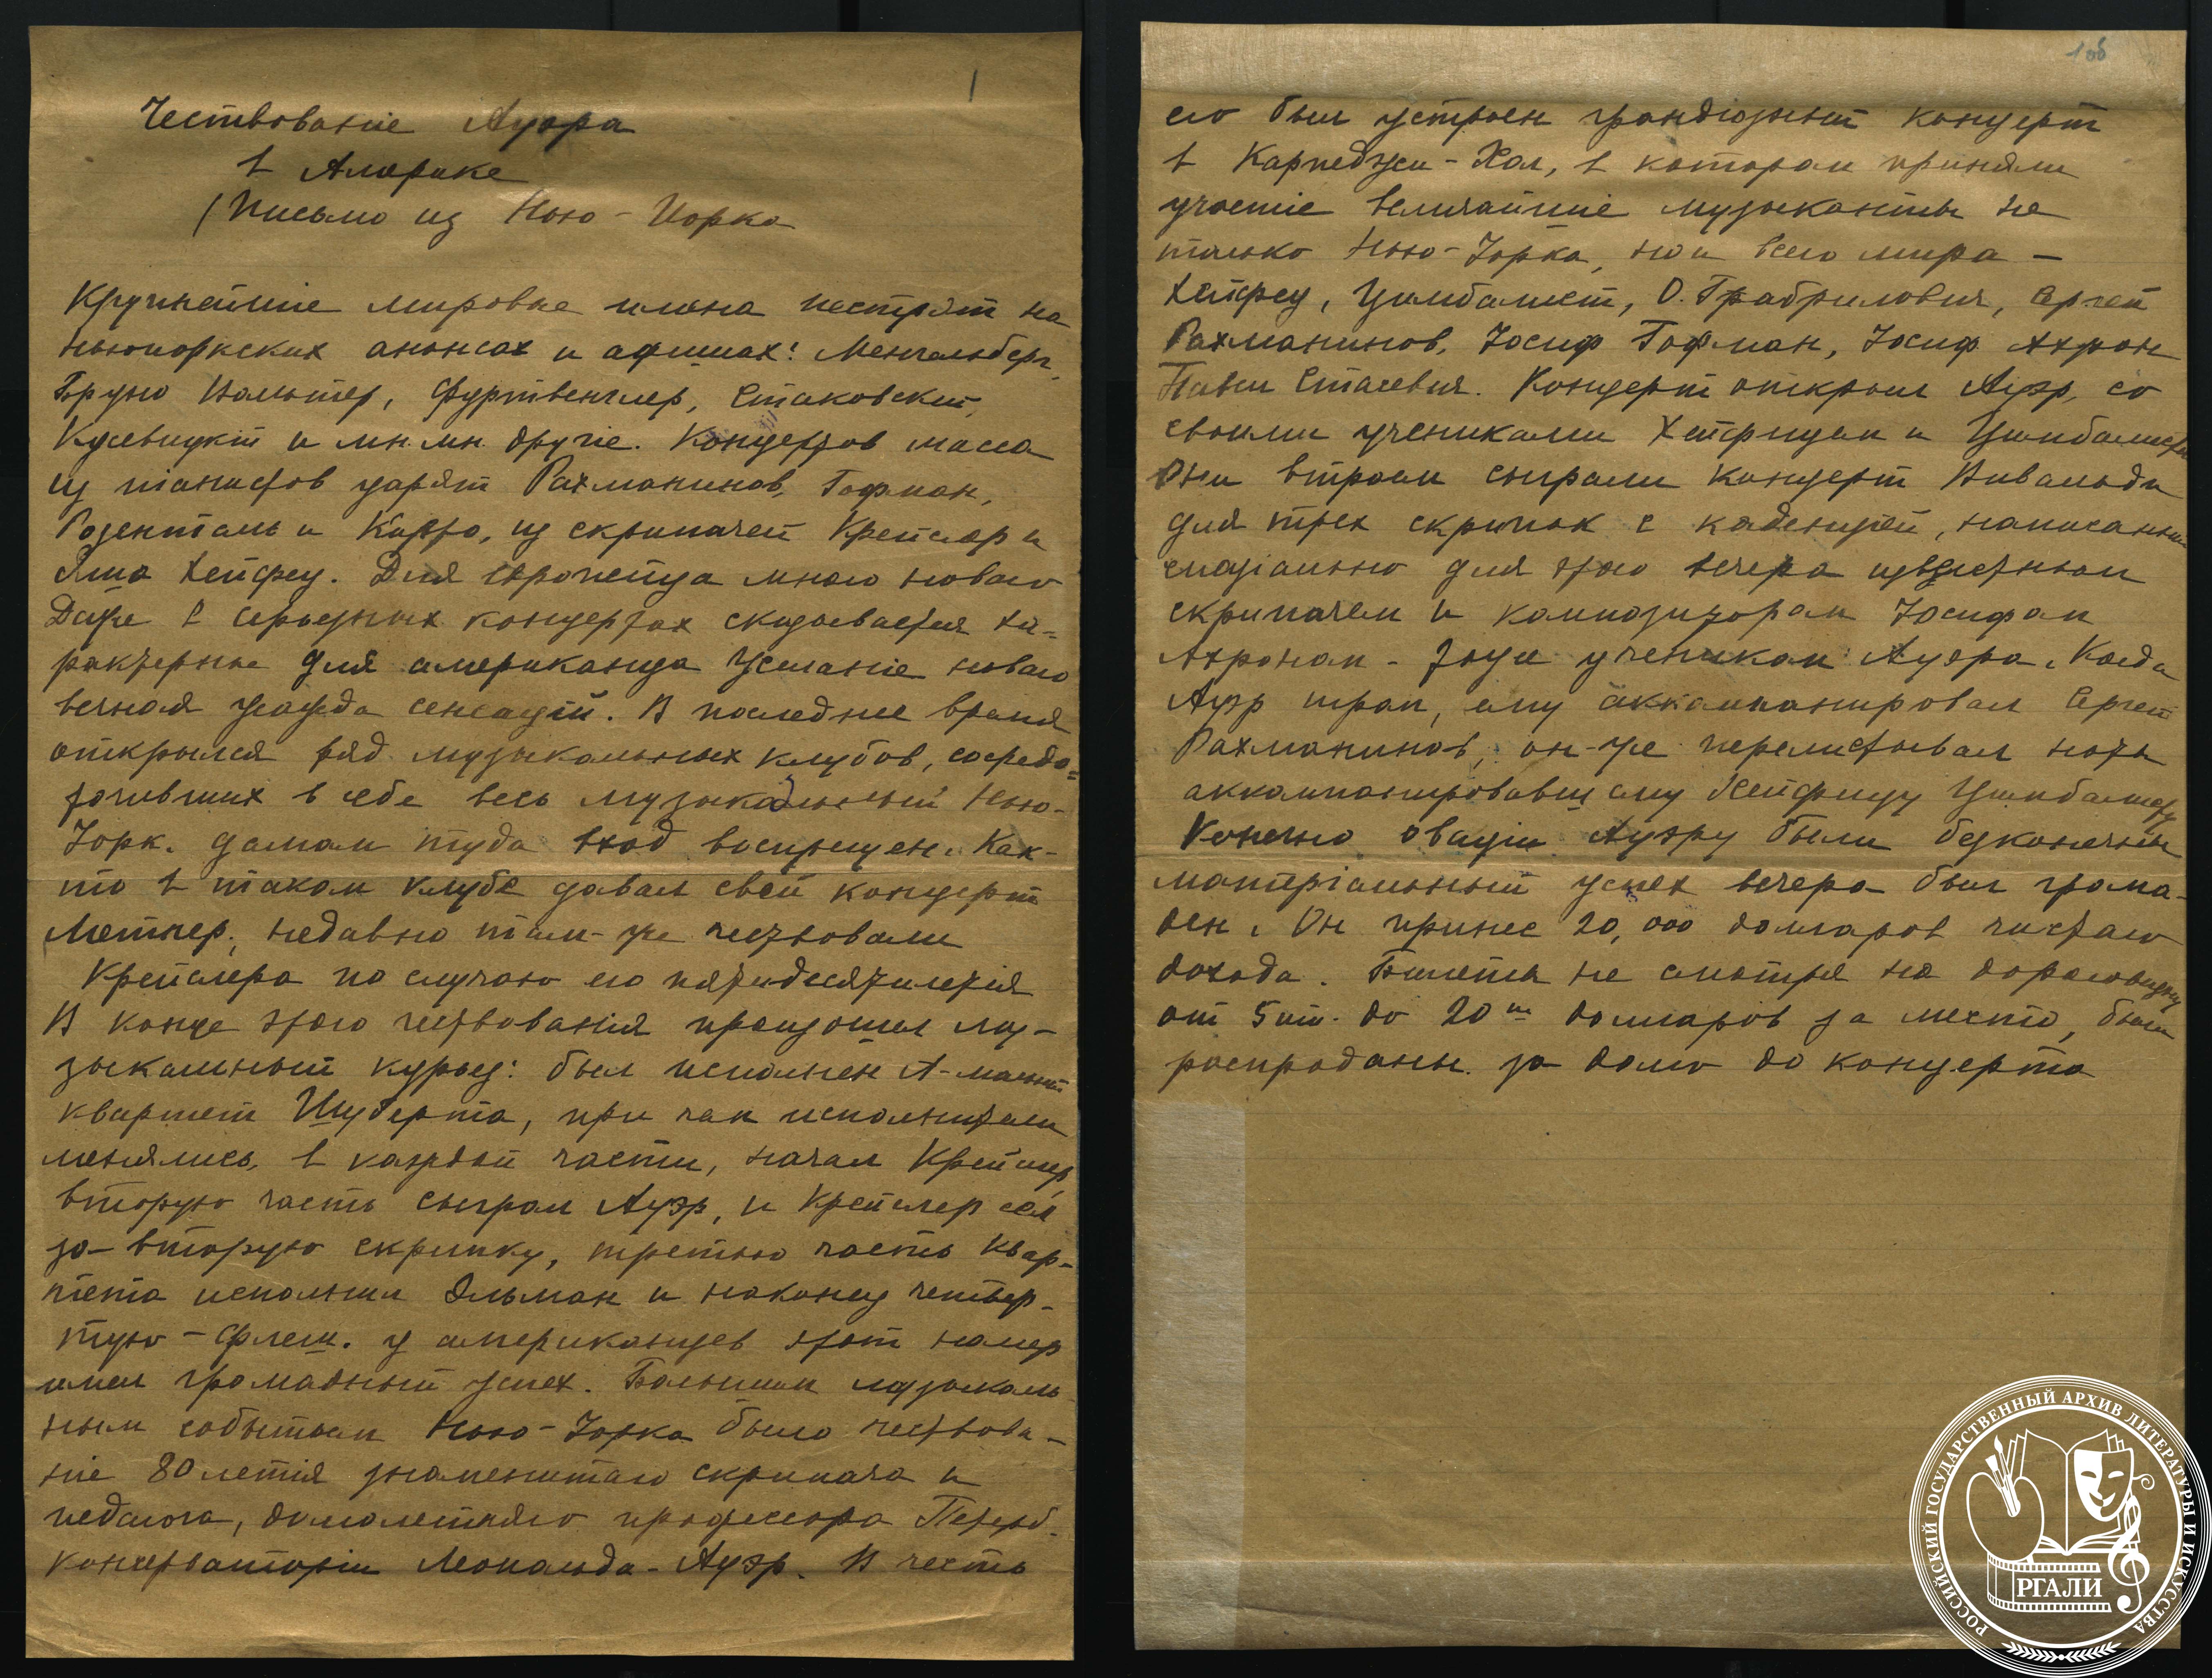 1
Чествованіе Ауэра
в Америке
(Письмо из Нью-Иорка
Крупнейшіе мировые имена пестрят на
ньюиоркских анонсах и афишах: Менгельберг,
Бруно Вальтер, Фуртвенглер, Стаковский,
Кусевицкій и мн. мн. другіе. Концертов масса
из піанистов царят Рахманинов, Гофман,
Розенталь и Корто, из скрипачей Крейслер и
Яша Хейфец. Для европейца много новаго
Даже в серьезных концертах сказывается ха-
рактерные для американца желаніе новаго
вечная жажда сенсацій. В последнее время
открылся ряд музыкальных клубов, сосредо-
точивших в себе весь музыкальный Нью-
Іорк. дамам туда вход воспрещен. Как-
то в таком клубе давал свой концерт
Метнер, недавно там-же чествовали
Крейслера по случаю его пятидесятилетія
В конце этого чествованія произошел му-
зыкальный курьез: был исполнен А-мольный
квартет Шуберта, при чем исполнители
менялись в каждой части, начал Крейслер,
вторую часть сыграл Ауэр, и Крейслер сел
за вторую скрипку, третью часть квар-
тета исполнил Эльман и наконец четвер-
тую - Флеш. у американцев этот номер
имел громадный успех. Большим музыкаль-
ным событіем Нью-Іорка было чествова-
ніе 80летія знаменитаго скрипача и
педагога, долголетняго профессора Петерб.
консерваторіи Леопольда - Ауэр. В честь
1об
его был устроен грандіозный концерт
в Карнеджи-Хал, в котором приняли
участіе величайшіе музыканты не
только Нью-Іорка, но и всего мира —
Хейфец, Цимбалист, О. Габрилович, Сергей
Рахманинов, Іосиф Гофман, Іосиф Ахрон
Павел Стасевич. Концерт открыл Ауэр, со
своими учениками Хейфицем и Цимбалистом
Они втроем сыграли концерт Вивальди
для трех скрипок с каденціей, написанный
спеціально для этого вечера известным
скрипачем и композитором Іосифом
Ахроном - тоже учеником Ауэра. Когда
Ауэр играл, ему аккомпанировал Сергей
Рахманинов, он-же перелистывал ноты
аккомпанировавшему Хейфицу Цимбалисту
Конечно оваціи Ауэру были безконечны
матеріальный успех вечера был грома-
ден. Он принес 20,000 долларов чистаго
дохода. Билеты не смотря на дороговизну
от 5ти до 20ти долларов за место, были
распроданы за долго до концерта
РОССИЙСКИЙ ГОСУДАРСТВЕННЫЙ АРХИВ ЛИТЕРАТУРЫ И ИСКУССТВА
РГАЛИ